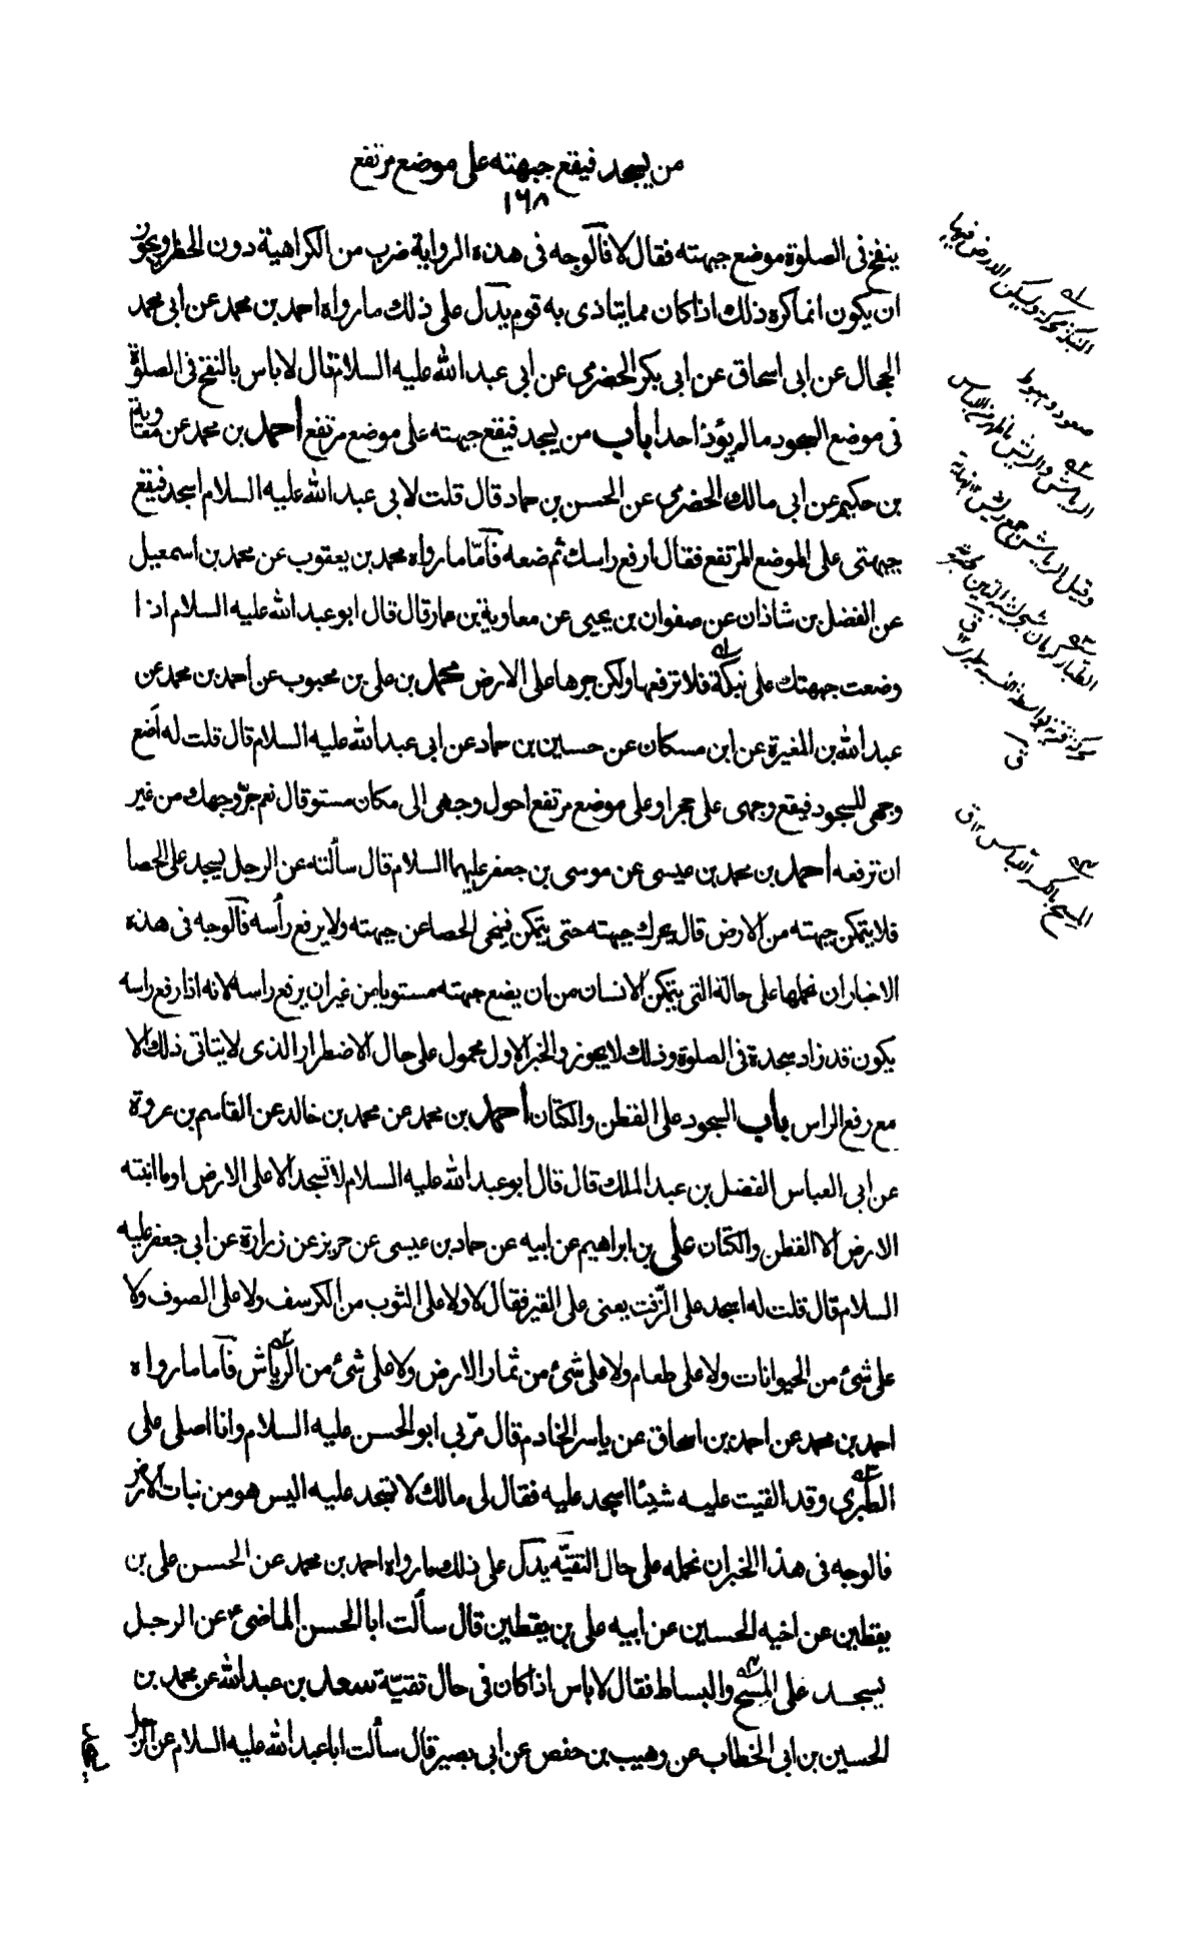 من يسجد فيقع جبهته على موضع مرتفع
١٦٨
ينفخ فى الصلوة موضع جبهته فقال لا فآلوجه فى هذه الرواية ضرب من الكراهية دون الحظر ويجوز
ان يكون انما كره ذلك اذا كان مما يتاذى به قوم يدل على ذلك ما رواه احمد بن محمد عن ابى محمد
الحجال عن ابى اسحاق عن ابى بكر الحضرمى عن ابى عبد الله عليه السلام قال لا باس بالنفخ فى الصلوة
فى موضع السجود ما لم يؤذ احدا باب من يسجد فيقع جبهته على موضع مرتفع احمد بن محمد عن معوية
بن حكيم عن ابى مالك الحضرمى عن الحسن بن حماد قال قلت لابى عبد الله عليه السلام اسجد فيقع
جبهتى على الموضع المرتفع فقال ارفع راسك ثم ضعه فآمّا ما رواه محمد بن يعقوب عن محمد بن اسمعيل
عن الفضل بن شاذان عن صفوان بن يحيى عن معاوية بن عمار قال قال ابو عبد الله عليه السلام اذا
وضعت جبهتك على نبكة فلا ترفعها ولكن جرها على الارض محمد بن على بن محبوب عن احمد بن محمد عن
عبد الله بن المغيرة عن ابن مسكان عن حسين بن حماد عن ابى عبد الله عليه السلام قال قلت له أضع
وجهى للسجود فيقع وجهى على حجر او على موضع مرتفع احول وجهى الى مكان مستو قال نعم جرّ وجهك من غير
ان ترفعه احمد بن محمد بن عيسى عن موسى بن جعفر عليهما السلام قال سألته عن الرجل يسجد على الحصا
فلا يتمكن جبهته من الارض قال يحرك جبهته حتى يتمكن فينحى الحصا عن جبهته ولا يرفع رأسه فآلوجه فى هذه
الاخبار ان نحملها على حالة التى يتمكن الانسان من ان يضع جبهته مستويا من غير ان يرفع راسه لانه اذا رفع راسه
يكون قد زاد سجدة فى الصلوة وذلك لا يجوز والخبر الاول محمول على حال الاضطرار الذى لا يتاتى ذلك الا
مع رفع الراس باب السجود على القطن والكتان احمد بن محمد عن محمد بن خالد عن القاسم بن عروة
عن ابى العباس الفضل بن عبد الملك قال قال أبو عبد الله عليه السلام لا تسجد الا على الارض او ما انبته
الارض الا القطن والكتان على بن ابراهيم عن ابيه عن حماد بن عيسى عن حريز عن زرارة عن ابى جعفر عليه
السلام قال قلت له اسجد على الزّفت يعنى على القير فقال لا ولا على الثوب من الكرسف ولا على الصوف ولا
على شئ من الحيوانات ولا على طعام ولا على شئ من ثمار الارض ولا على شئ من الرياش فآما ما رواه
احمد بن محمد عن احمد بن اسحاق عن ياسر الخادم قال مرّ بى ابو الحسن عليه السلام وانا اصلى على
الطبرى وقد القيت عليه شيئا اسجد عليه فقال لى مالك لا تسجد عليه اليس هو من نبات الارض
فالوجه فى هذا الخبر ان نحمله على حال التقيّة يدل على ذلك ما رواه احمد بن محمد عن الحسن على بن
يقطين عن اخيه الحسين عن ابيه على بن يقطين قال سألت ابا الحسن الماضى ع عن الرجل
يسجد على المسح والبساط فقال لا باس اذا كان فى حال تقيّة سعد بن عبد الله عن محمد بن
الحسين بن ابى الخطاب عن وهيب بن حفص عن ابى بصير قال سألت ابا عبد الله عليه السلام عن الرجل
النبكة محركة ويسكن الارض فيها
صعود وهبوط
الرياش والريش ما ظهر من اللباس
وقيل الرياش جمع ريش
المسح بالكسر البلاس ق